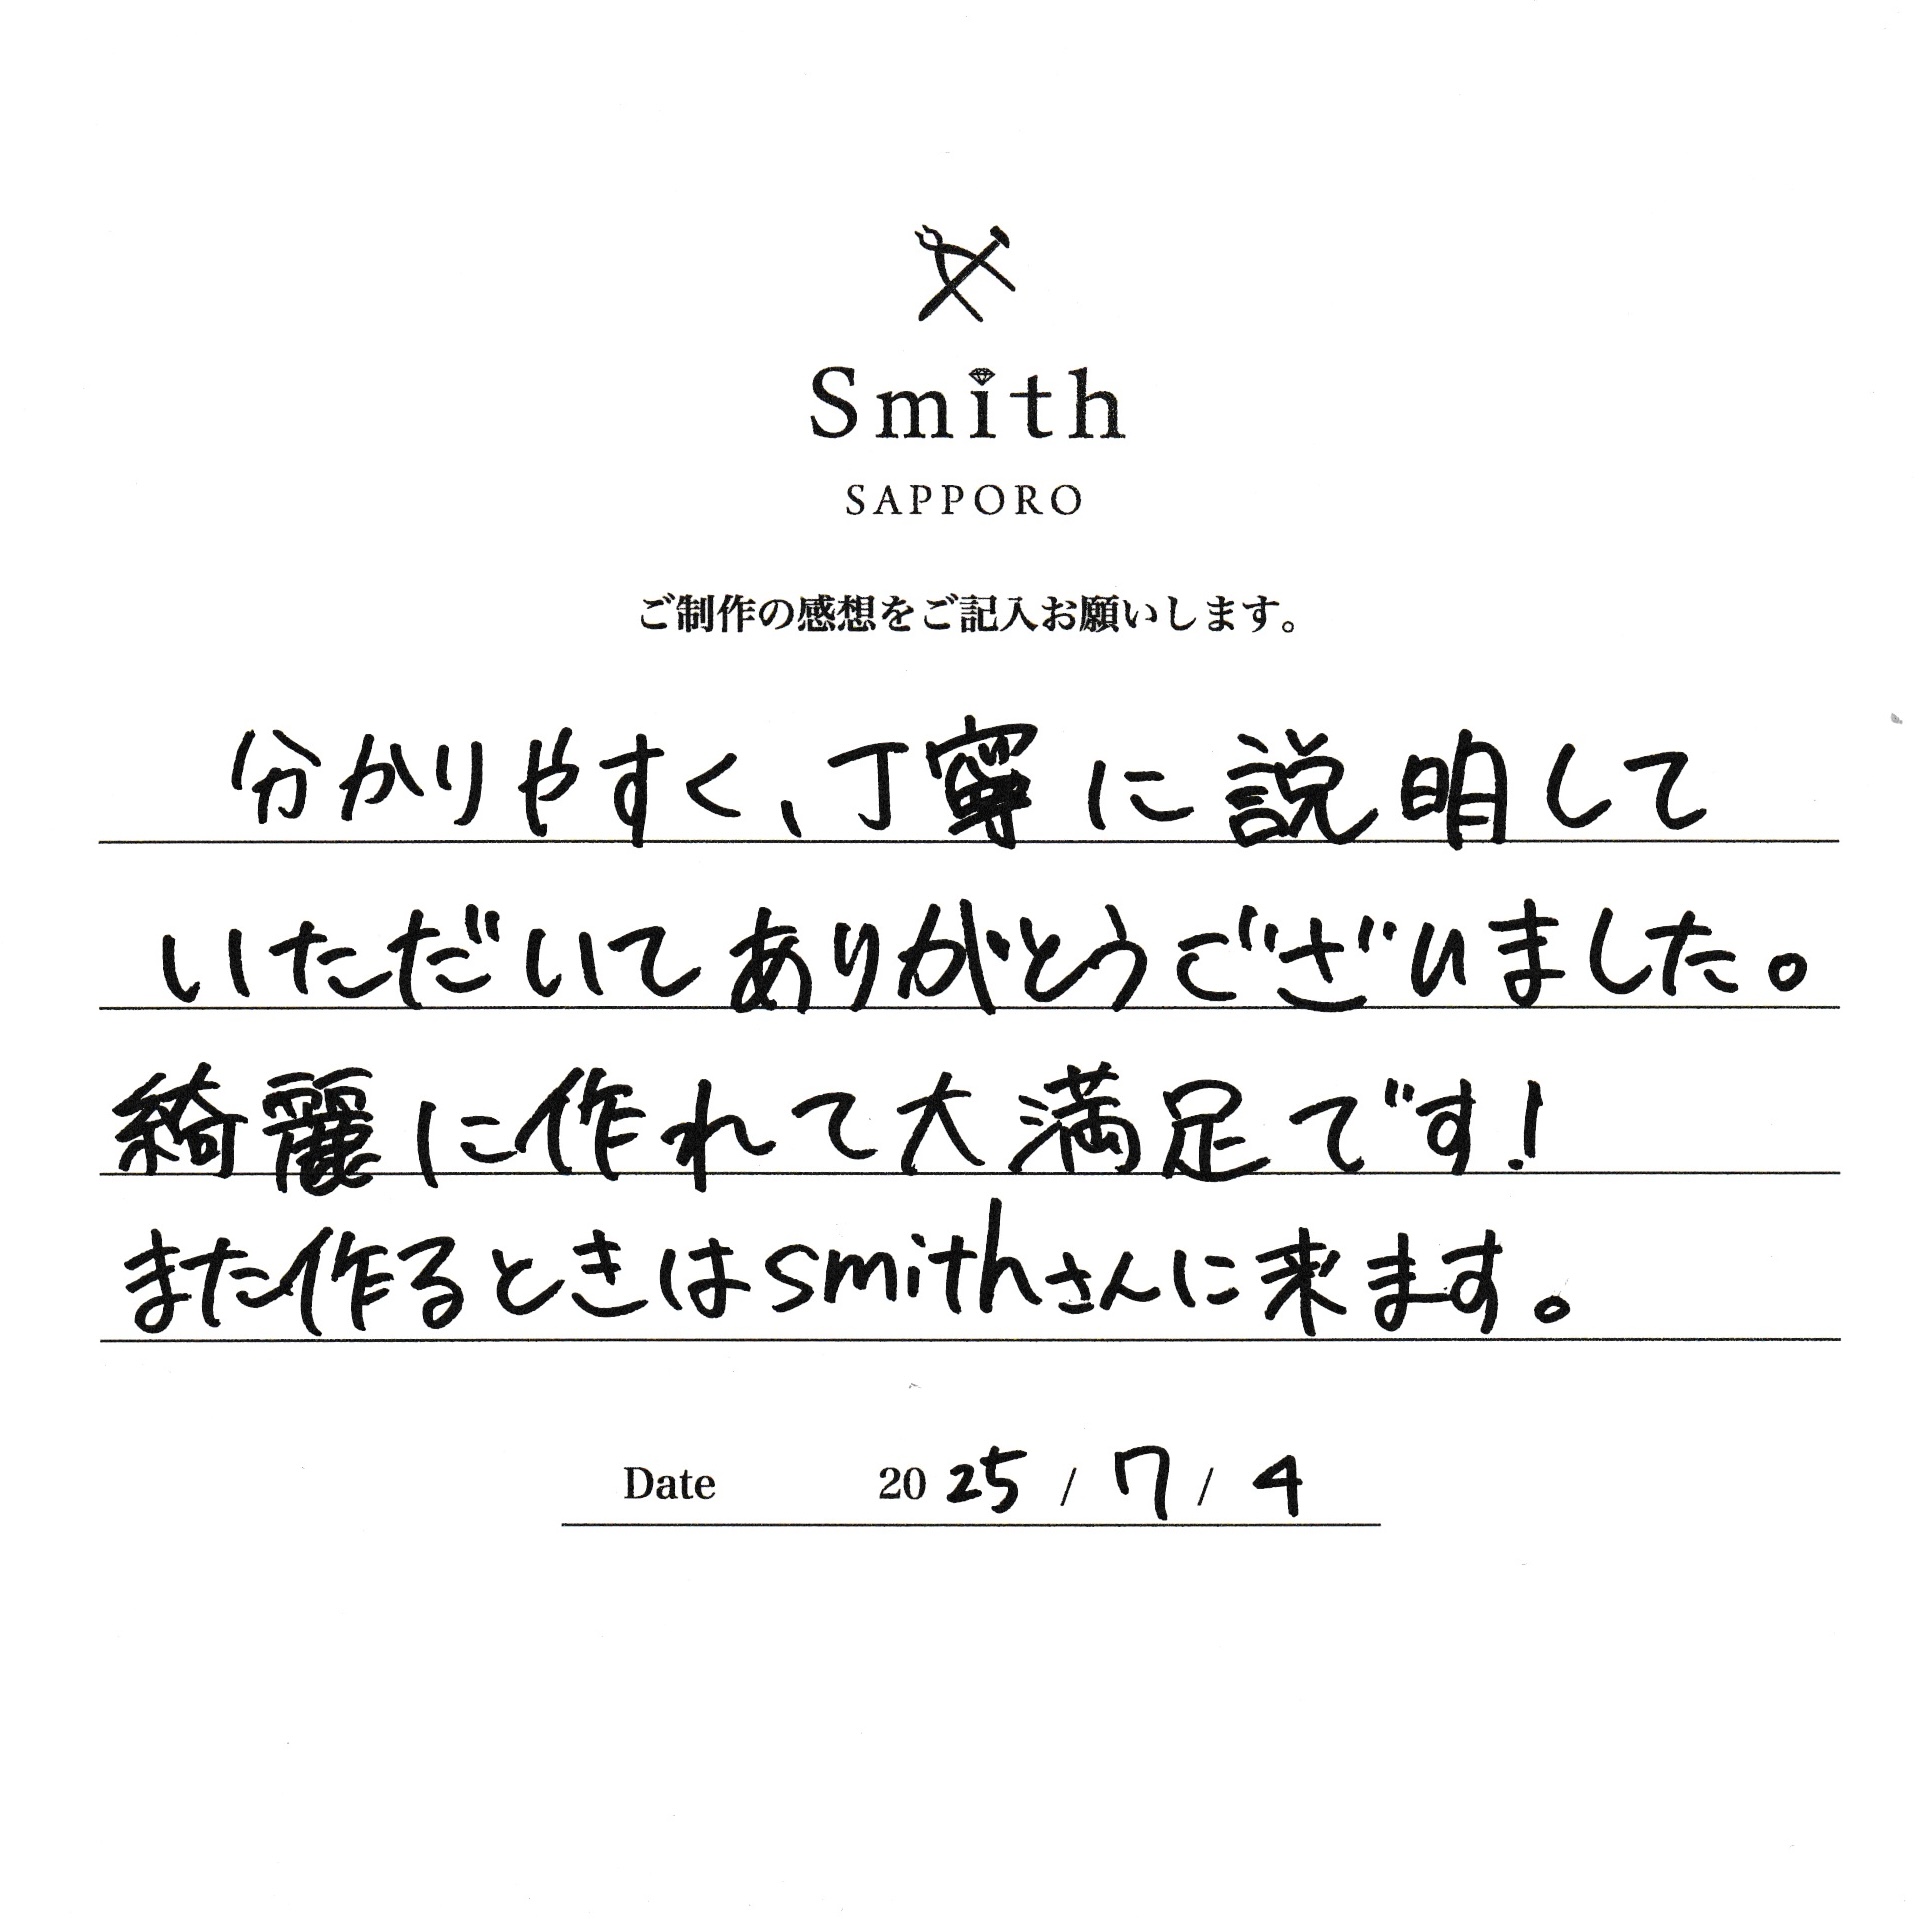 Smith
SAPPORO
ご制作の感想をご記入お願いします。
分かりやすく、丁寧に説明して
いただいてありがとうございました。
綺麗に作れて大満足です!
また作るときはsmithさんに来ます。
Date 2025 / 7 / 4